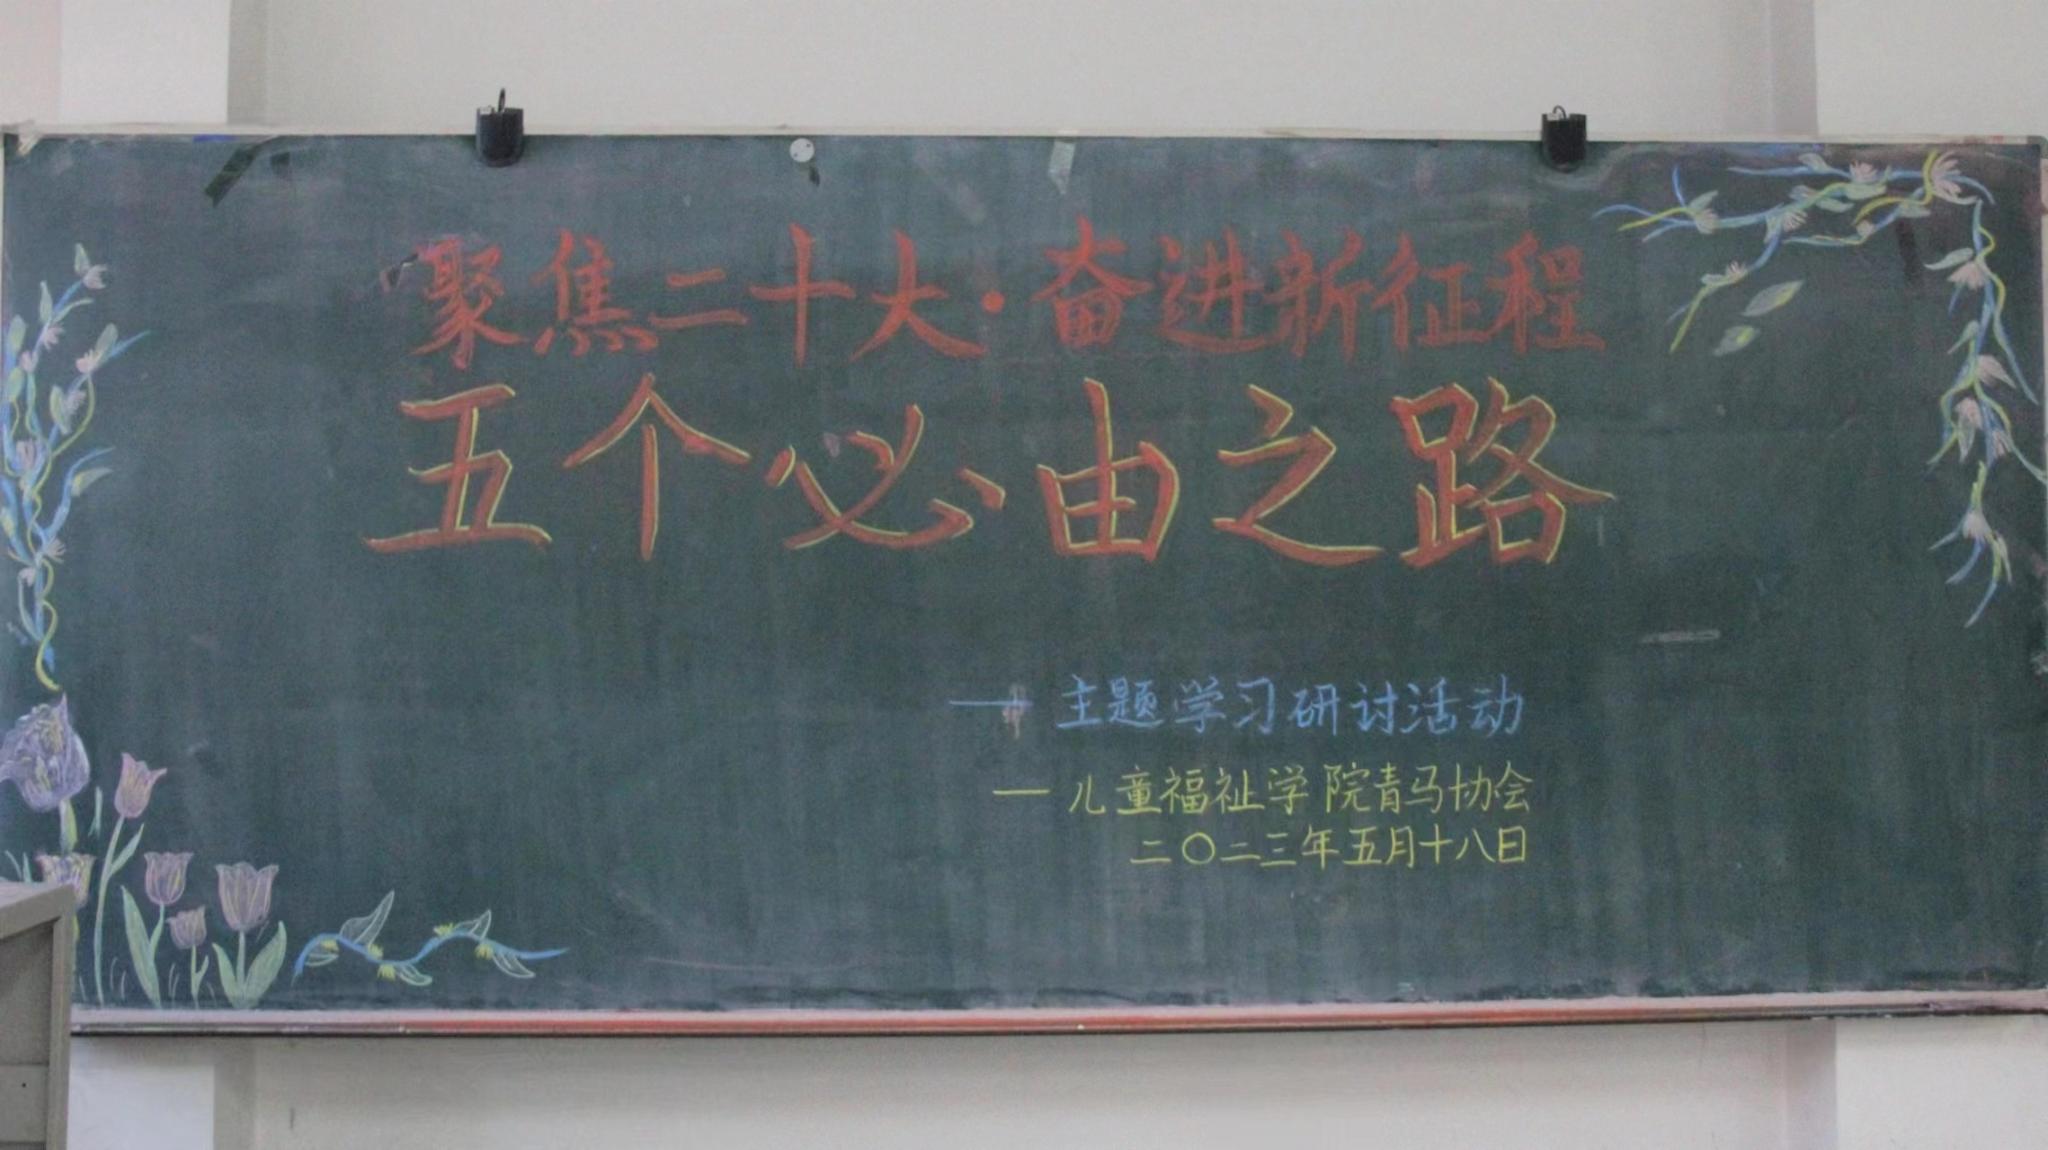 聚焦二十大·奋进新征程
五个必由之路
——主题学习研讨活动
—儿童福祉学院青马协会
二〇二三年五月十八日